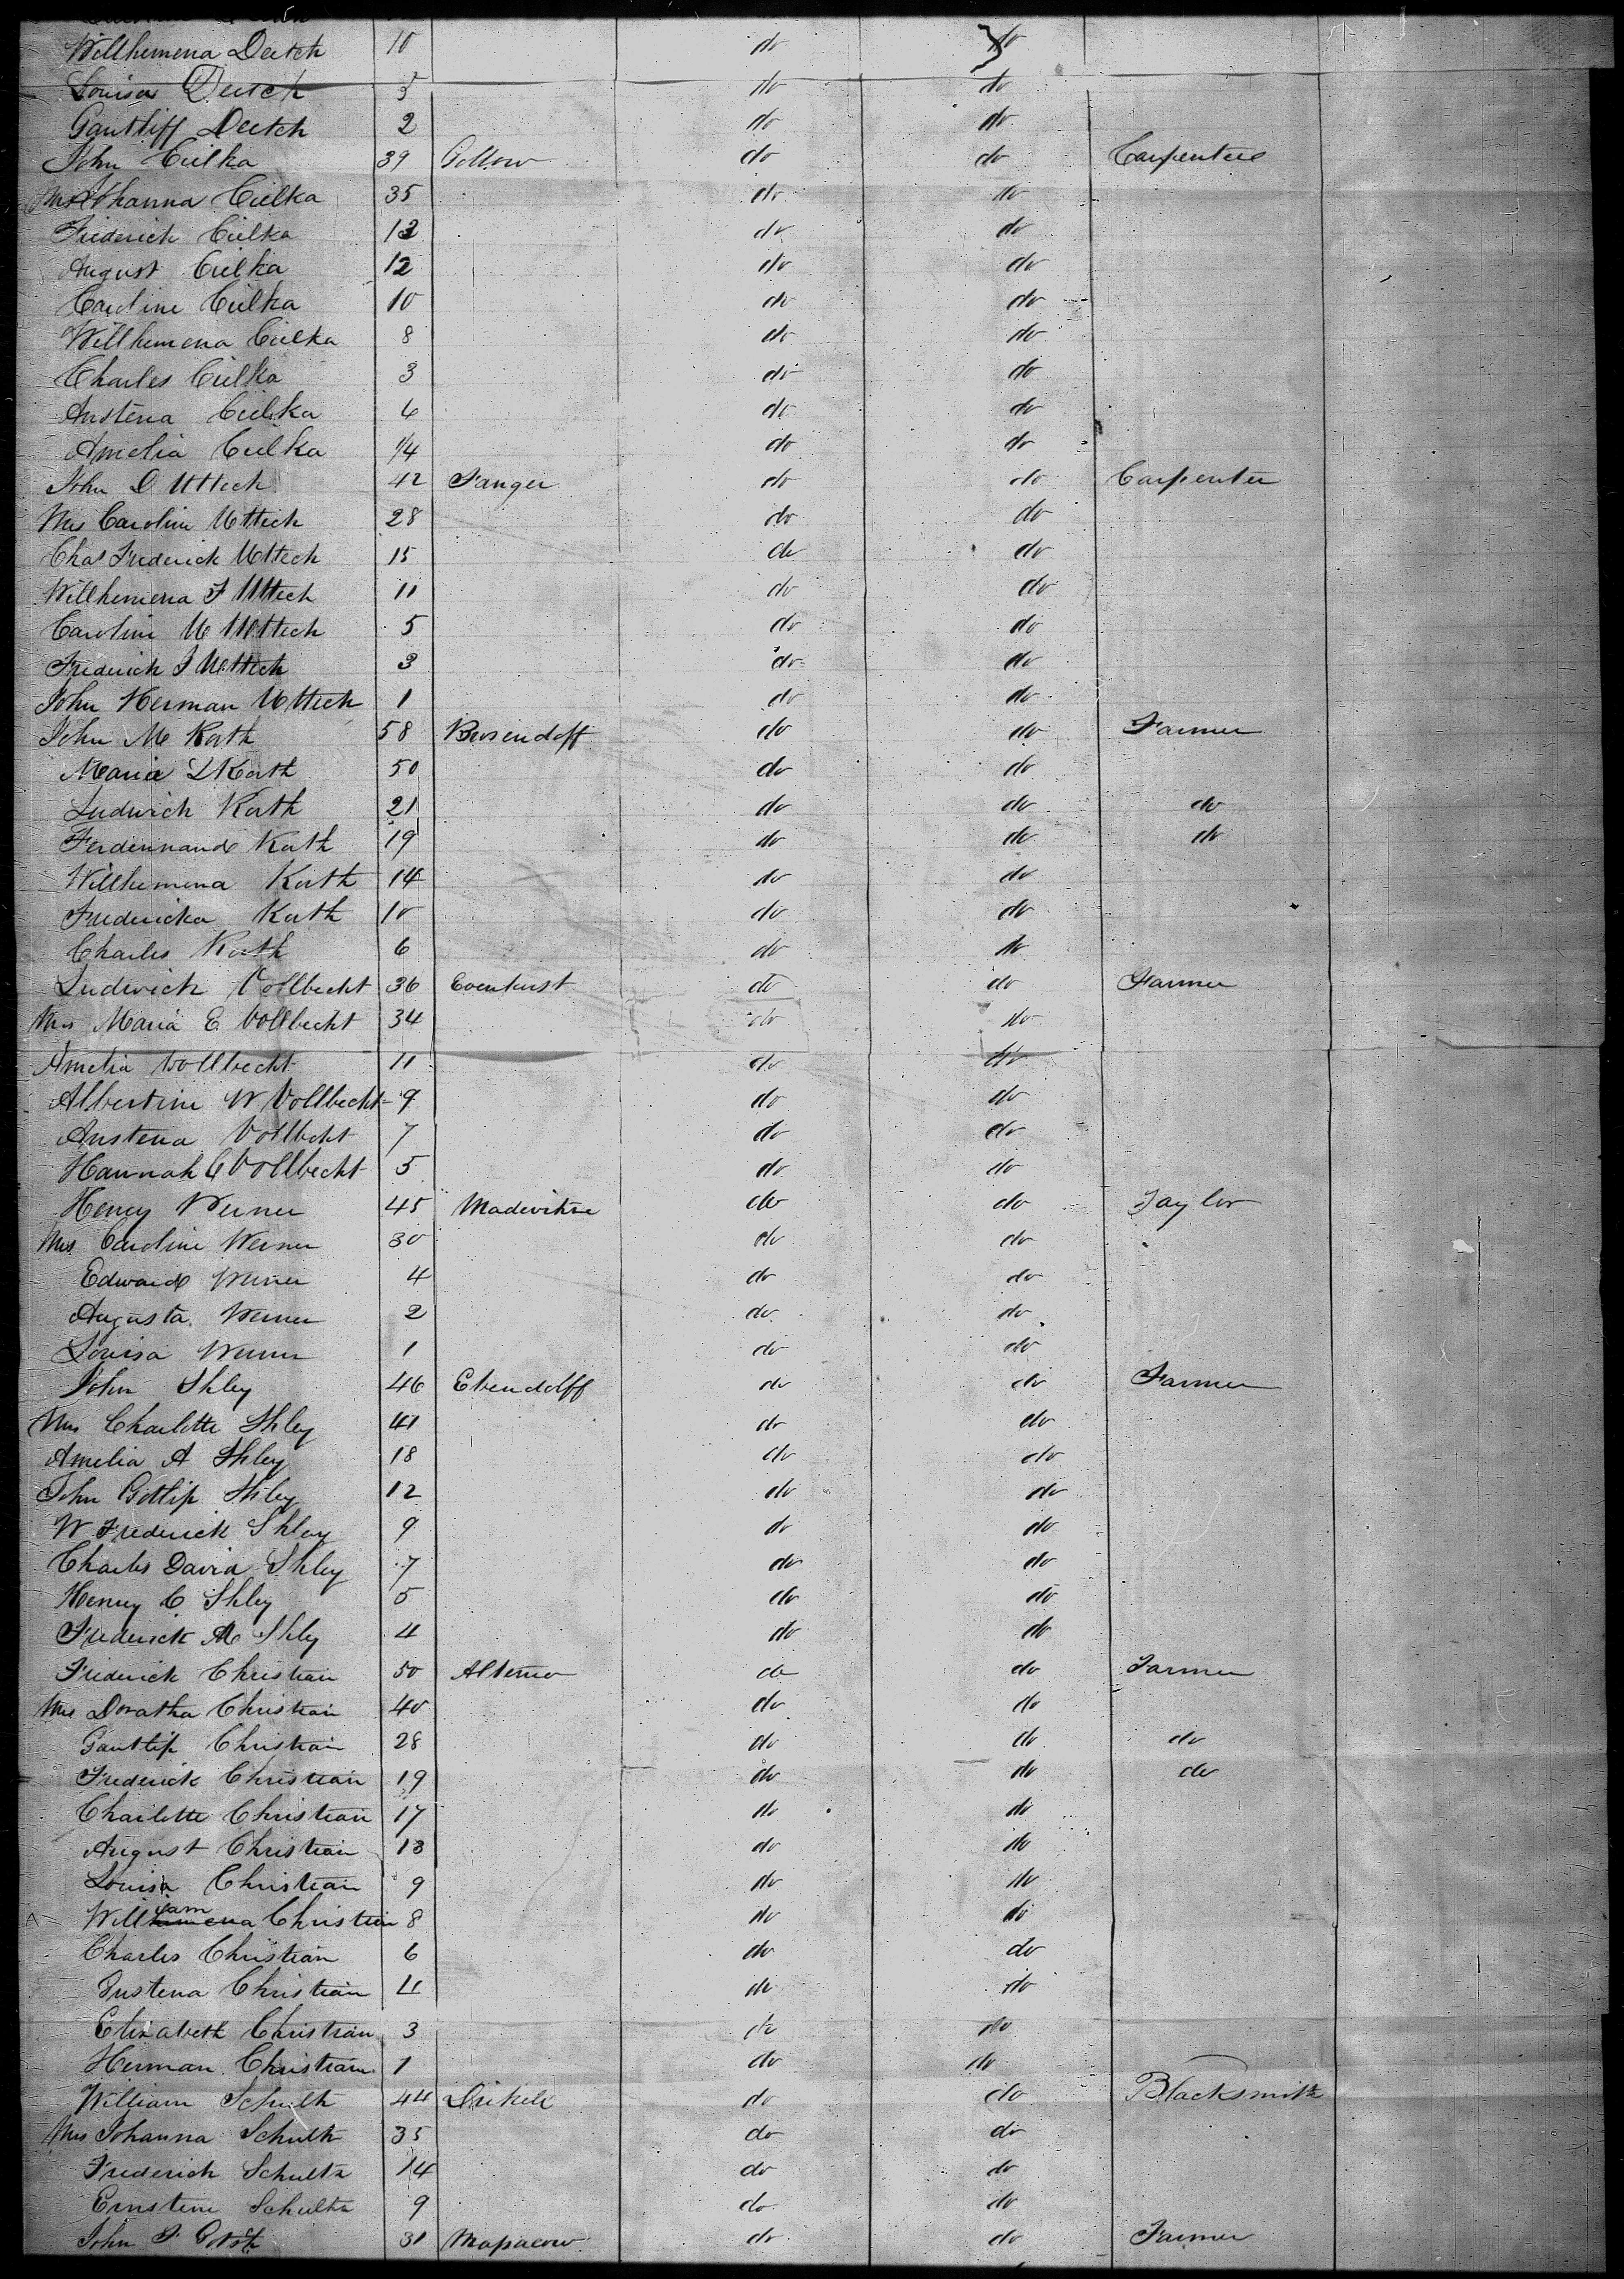 Willhemena Deetch 10 do do
Louisa Deetch 5 do do
Gauttiff Deetch 2 do do
John Cielka 39 Pollow do do Carpenter
Mrs Johanna Cielka 35 do do
Friderich Cielka 13 do do
August Cielka 12 do do
Caroline Cielka 10 do do
Willhemena Cielka 8 do do
Charles Cielka 3 do do
Austena Cielka 4 do do
Amelia Cielka 1/4 do do
John D Uttech 42 Sanger do do Carpenter
Mrs Caroline Uttech 28 do do
Chas Frederick Uttech 15 do do
Willhemena F Uttech 11 do do
Caroline U Uttech 5 do do
Frederick J Uttech 3 do do
John Herman Uttech 1 do do
John M Korth 58 Brosendoff do do Farmer
Maria L Korth 50 do do
Ludwich Korth 21 do do do
Ferdinnand Korth 19 do do do
Willhemena Korth 14 do do
Fredericka Korth 10 do do
Charles Korth 6 do do
Ludwich Vollbecht 36 do do Farmer
Mrs Maria E Vollbecht 34 do do
Amelia Vollbecht 11 do do
Albertine W Vollbecht 9 do do
Austena Vollbcht 7 do do
Hannah C Vollbecht 5 do do
Henry Werner 45 Madevitse do do Taylor
Mrs Caroline Werner 30 do do
Edward Werner 4 do do
Augusta Werner 2 do do
Louisa Werner 1 do do
John Shley 46 Ebendolff do do Farmer
Mrs Charlotte Shley 41 do do
Amelia A Shley 18 do do
John Gottlip Shley 12 do do
W Frederick Shley 9 do do
Charles David Shley 7 do do
Henry C Shley 5 do do
Frederick M Shly 4 do do
Friderick Christian 50 Altena do do Farmer
Mrs Doratha Christian 40 do do
Gauttip Christian 28 do do do
Frederick Christian 19 do do do
Charlotte Christian 17 do do
August Christian 13 do do
Louisa Christian 9 do do
William Christian 8 do do
Charles Christian 6 do do
Justena Christian 4 do do
Elizabeth Christian 3 do do
Herman Christian 1 do do
William Schultz 44 do do Blacksmith
Mrs Johanna Schultz 35 do do
Frederick Schultz 14 do do
Ernstine Schultz 9 do do
John F 31 Mapacow do do Farmer